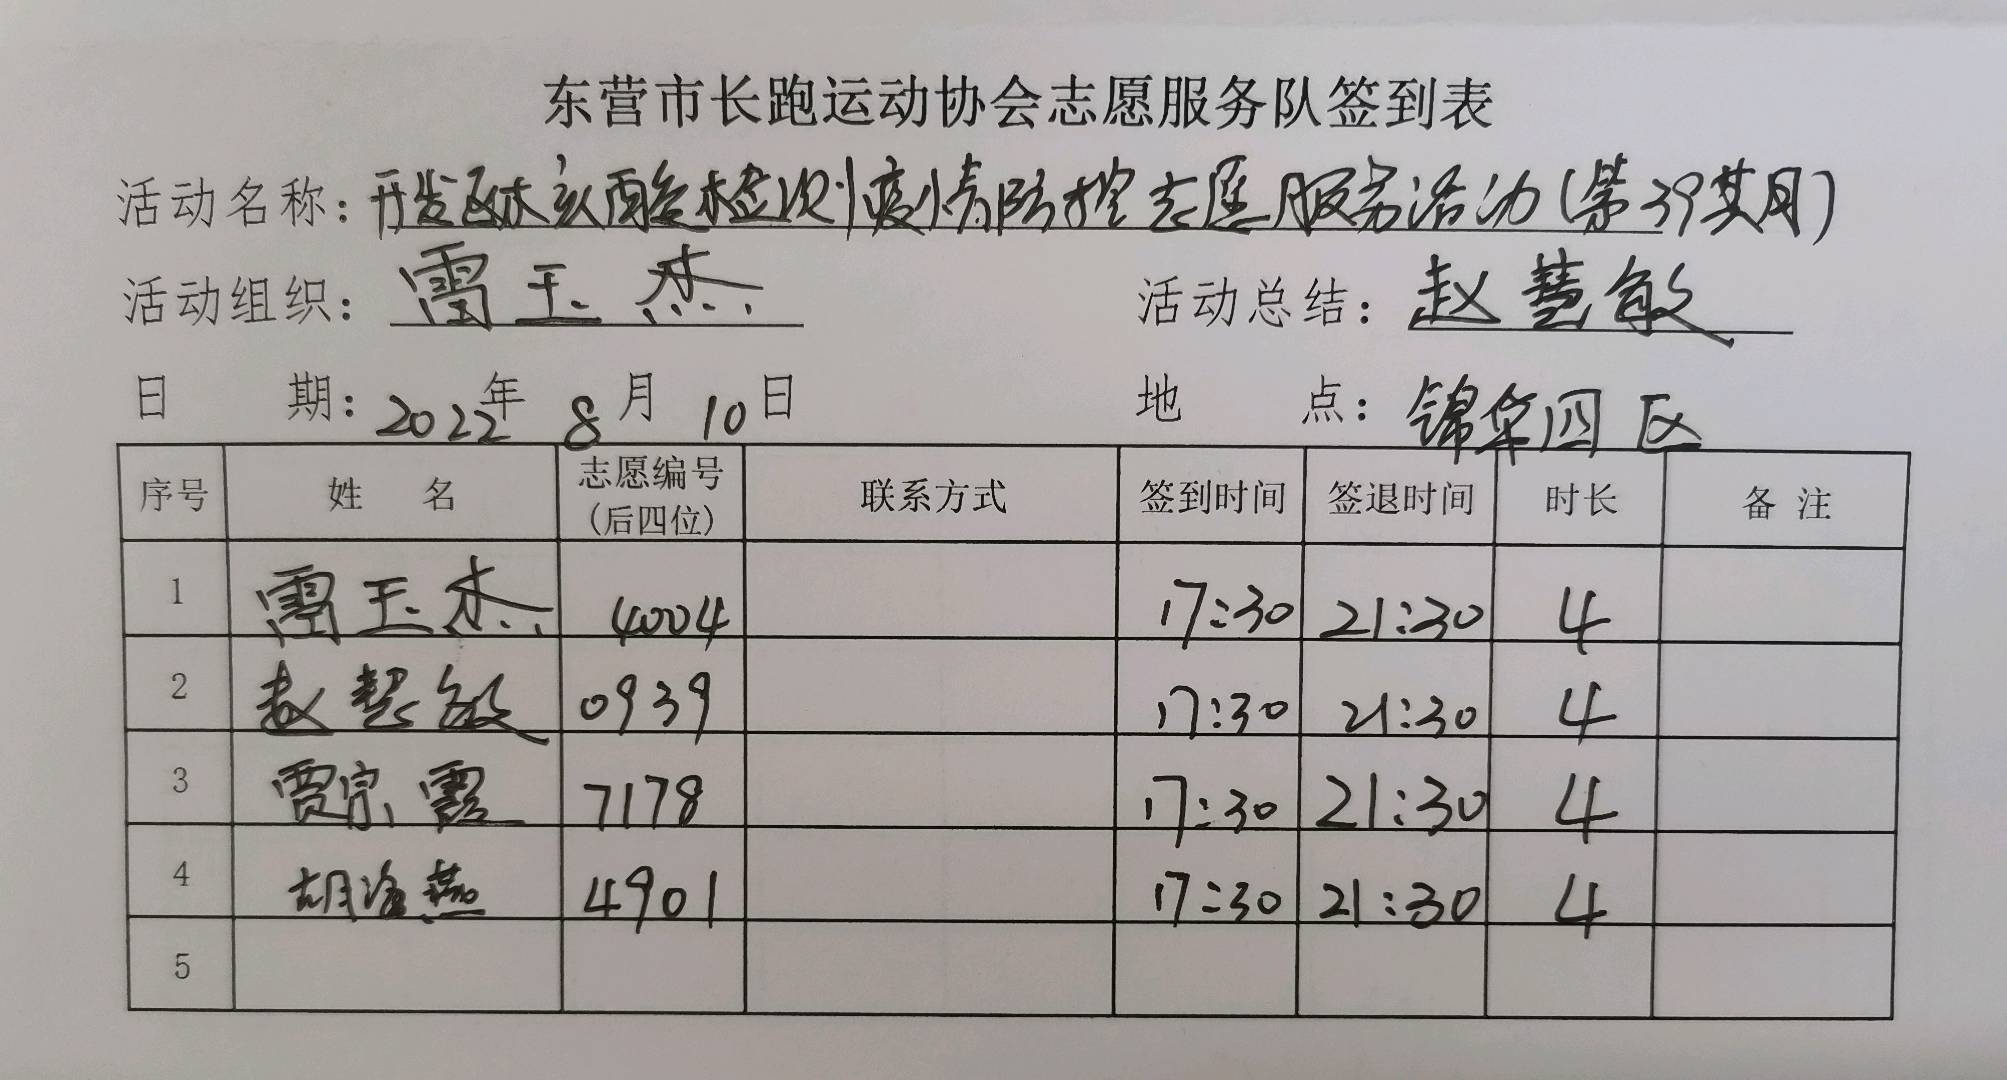 东营市长跑运动协会志愿服务队签到表
活动名称：开发区核酸检测疫情防控志愿服务活动(第39期)
活动组织：雷玉杰 活动总结：赵慧敏
日 期：2022年 8月 10日 地 点：锦华四区
序号 姓 名 志愿编号(后四位) 联系方式 签到时间 签退时间 时长 备 注
1 雷玉杰 4004 17:30 21:30 4
2 赵慧敏 0939 17:30 21:30 4
3 贾宗霞 7178 17:30 21:30 4
4 胡海燕 4901 17:30 21:30 4
5